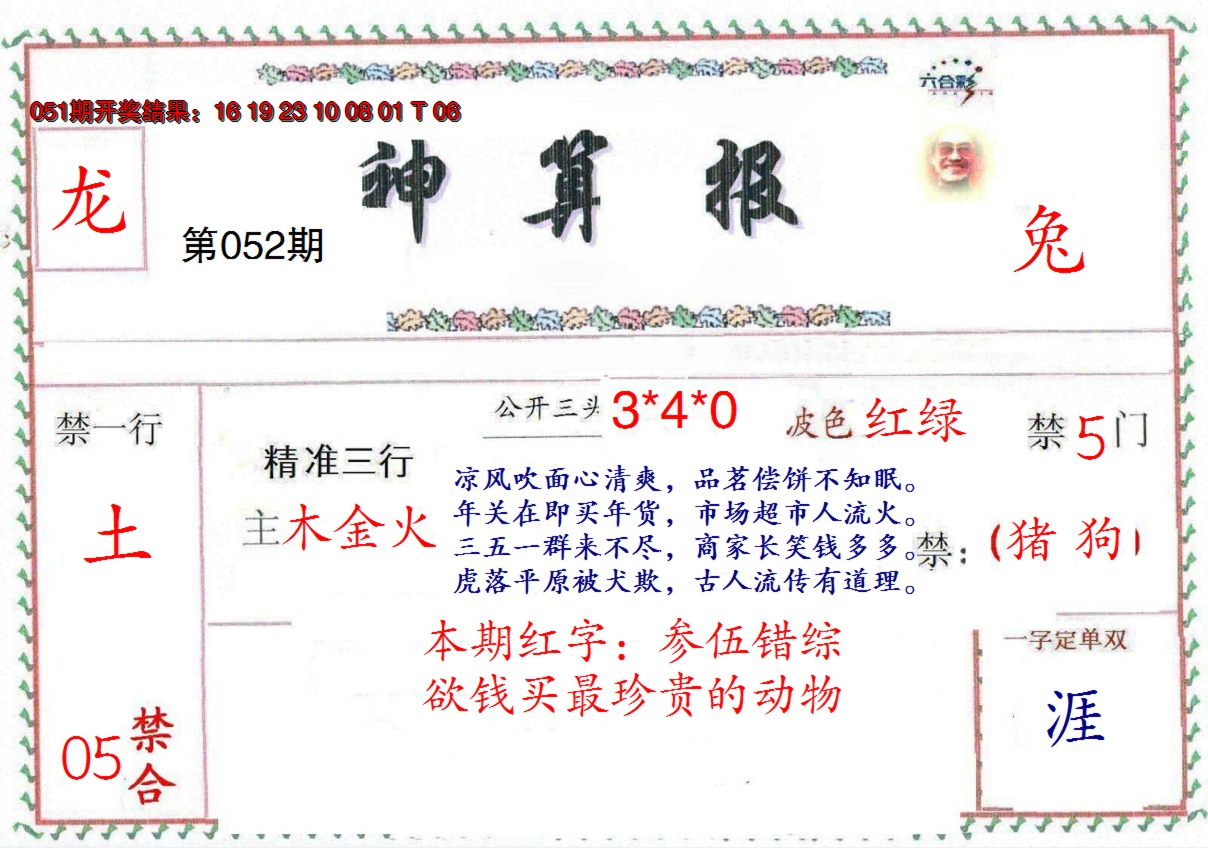 六合彩
051期开奖结果：16 19 23 10 08 01 T 06
神算报
龙
第052期
兔
禁一行
土
05禁合
精准三行
主木金火
公开三头 3*4*0
波色 红绿
禁5门
凉风吹面心清爽，品茗偿饼不知眠。
年关在即买年货，市场超市人流火。
三五一群来不尽，商家长笑钱多多。
虎落平原被犬欺，古人流传有道理。
禁：（猪 狗）
本期红字：参伍错综
欲钱买最珍贵的动物
一字定单双
涯